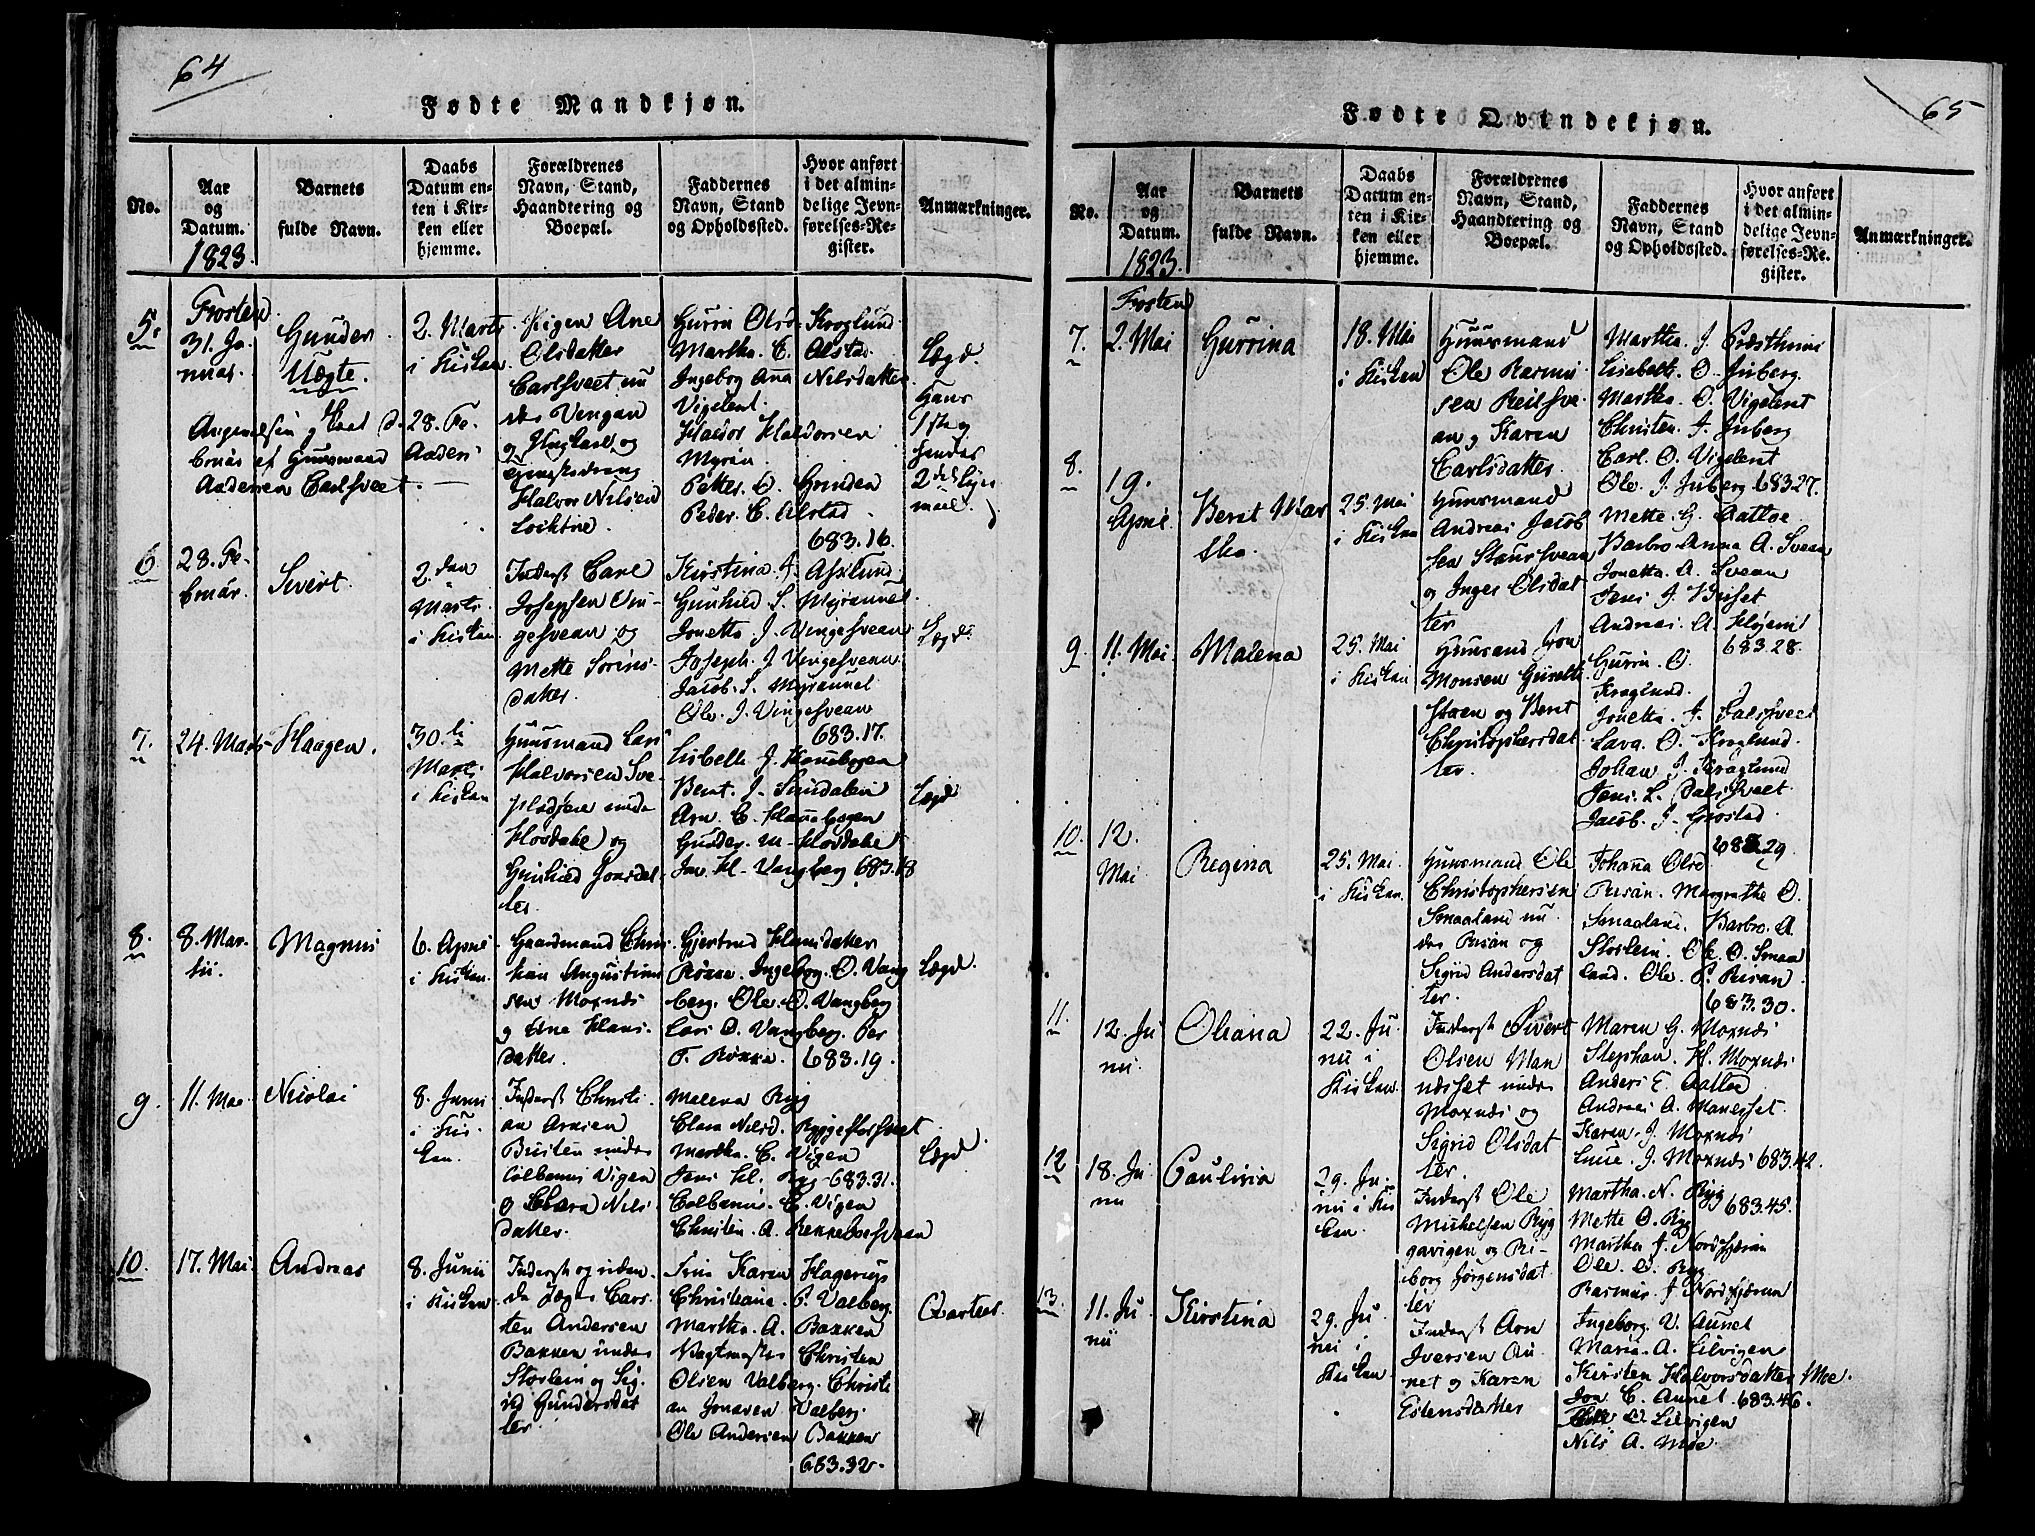 64
Fødte Mandkjøn.
No.
Aar
og
Datum.
1823.
Barnets
fulde Navn.
Daabs
Datum en-
ten i Kir-
ken eller
hjemme.
Forældrenes
Navn, Stand,
Haandtering og
Boepæl.
Faddernes
Navn, Stand
og Opholdssted.
Hvor anført
i det almin-
delige Jevn-
førelses-Re-
gister.
Anmærkninger.
Frosten
5.
31. Ja-
nuar.
Gunder
Uægte.
2. Marts
i Kirken
28. Fe-
Pigen Ane
Olsdatter
Carlsveet un
der Vingan
og
Halvor Nilsen
Lochtne.
Gurrin Olsd. Kroglund
Martha. C. Alstad
Ingebog Ana Nilsdatter
Vigelent.
Haldor Haldorsen
Myrin
Petter. O. Grinden
Peder. C. Alstad
683.16.
Lægd.
Hans
1ste og
hendes
2det Leier-
maal.
6
28. Fe-
bruar.
Sivert
2.den
Marts
i Kirken
Inderst Carl
Josephsen Vin-
gesvean og
Mette Sørins-
datter.
Kirstina. J. Asklund
Gunhild S. Myraunet
Jonetta J. Vingesvean
Joseph. J. Vingesvean
Jacob. S. Myraunet
Ole. J. Vingesvean
683.17.
Lægd.
7.
24. Marts
Haagen.
30.te
Marts
i Kirken
Huusmand Lars
Halvorsen Sve-
pladsen under
Hosdake) og
Gunhild Jonsdat-
ter.
Lisbeth J. Haugbogen
Berit. J. Sundalen
Arn C. Haugbogen
Gunder. M. Hosdake
Jon H. Vangberg 683.18
Lægd
8.
8. Mar-
tii.
Magnus
6. April
i Kirken
Gaardmand Chris
tian Augustinus
sen Moxnes
og Ane Hans-
datter.
Gjertrud Hansdatter
Røkke. Ingeborg. O. Vang
berg. Ole. O. Vangberg
Lars O. Vangberg. Per
T. Røkke. 683.19.
Lægd.
9.
11. Mai
Nicolai
8. Junii
i Kir-
ken.
Inderst Christi-
an Arnsen
Busten under
Colbanus Vigen
og Clara Nils
datter.
Malena Ryg
Clara Nilsd. Ryggeflorsveet
Martha. C. Vigen
Jens H. Ryg 683.31.
Colbanus. C. Vigen
Christen. A. Rekkeborsvean
Lægd.
10.
17. Mai
Andreas
8. Junii
i Kirken
Inderst og riden-
de Jæger Cars-
ten Andersen
Bakken under
Størlein og Sig-
rid Gundersdat
ter.
Trine Karen Hagerups
Christiane. P. Valberg.
Martha. A. Bakken
Vagtmester Christen
Olsen Valberg. Christi
an Jonasen Valberg.
Ole Andersen Bakken
683.32.
Qvarteer.
65
Fødte Qvindekjøn.
No.
Aar
og
Datum.
1823.
Barnets
fulde Navn.
Daabs
Datum en-
ten i Kir-
ken eller
hjemme.
Forældrenes
Navn, Stand,
Haandtering og
Boepæl.
Faddernes
Navn, Stand
og Opholdssted.
Hvor anført
i det almin-
delige Jevn-
førelses-Re-
gister.
Anmærkninger.
Frosten
7.
2. Mai
Gurrina
18. Mai
i Kirken
Huusmand
Ole Rasmu
sen Reilsve
an og Karen
Carlsdatter.
Martha. J. Præsthuus
Lisabeth. O. Juberg.
Martha. O. Vigelent
Christen. J. Juberg
Carl. O. Vigelent
Ole. J. Juberg 683.27.
8.
19.
April
Berit Mar
tha.
25. Mai
i Kirken
Huusmand
Andreas Jacob
sen Staursvean
og Inger Olsdat
ter
Mette G. Aattoe
Barbro Anna A. Svean
Jonetta. A. Svean
Jens J. Viiset
Andreas. A. Høiem
683.28.
9.
11. Mai
Malena
25. Mai
i Kirken
Huusmand Jon
Monsen
og Berit
Christophersdat
ter.
Gurrin. O.
Kraglund.
Jonetta. J. Dalsveet
Lava. O. Kraglund.
Johan J. Kraglund
Jens. L. Dalsveet
Jacob. J. Grostad
683.29
10.
12.
Mai
Regina
25. Mai
i Kirken
Huusmand Ole
Christophersen
Smaaland un-
der Risan og
Sigrid Andersdat
ter.
Johana Olsd
Risan. Margrethe O.
Smaaland. Barbro. A
Størlein. Ole. O. Smaa
land. Ole P. Risan.
683.30.
11.
12. Ju
nii.
Oliana
22. Ju-
nii i
Kirken
Inderst Sivert
Olsen Man
nesset under
Moxnes og
Sigrid Olsdat
ter.
Maren G. Moxnes
Stephan. H. Moxnes
Anders E. Aattoe
Andreas A. Manesset.
Karen. J. Moxnes
J. Moxnes 683.42.
12
18. Ju
nii
Paulina
29. Ju-
nii i Kir
ken
Inderst Ole
Michelsen Ryg
gavigen og Ri-
borg Jørgensdat
ter
Martha. N. Ryg
683.45.
Mette O. Ryg
Martha J. Nordfjæran
Ole. O. Ryg
Rasmus. J Nordfjæran
13.
11. Ju
nii
Kirstina
29. Ju
nii i
Kirken
Inderst Arn
Iversen Au
net og Karen
Estensdatter
Ingeborg. V. Aunet
Maria. A. Lilvigen
Kirsten Halvorsdatter Moe.
Jon C. Aunet. 683.46.
O Lilvigen
Nils A. Moe.